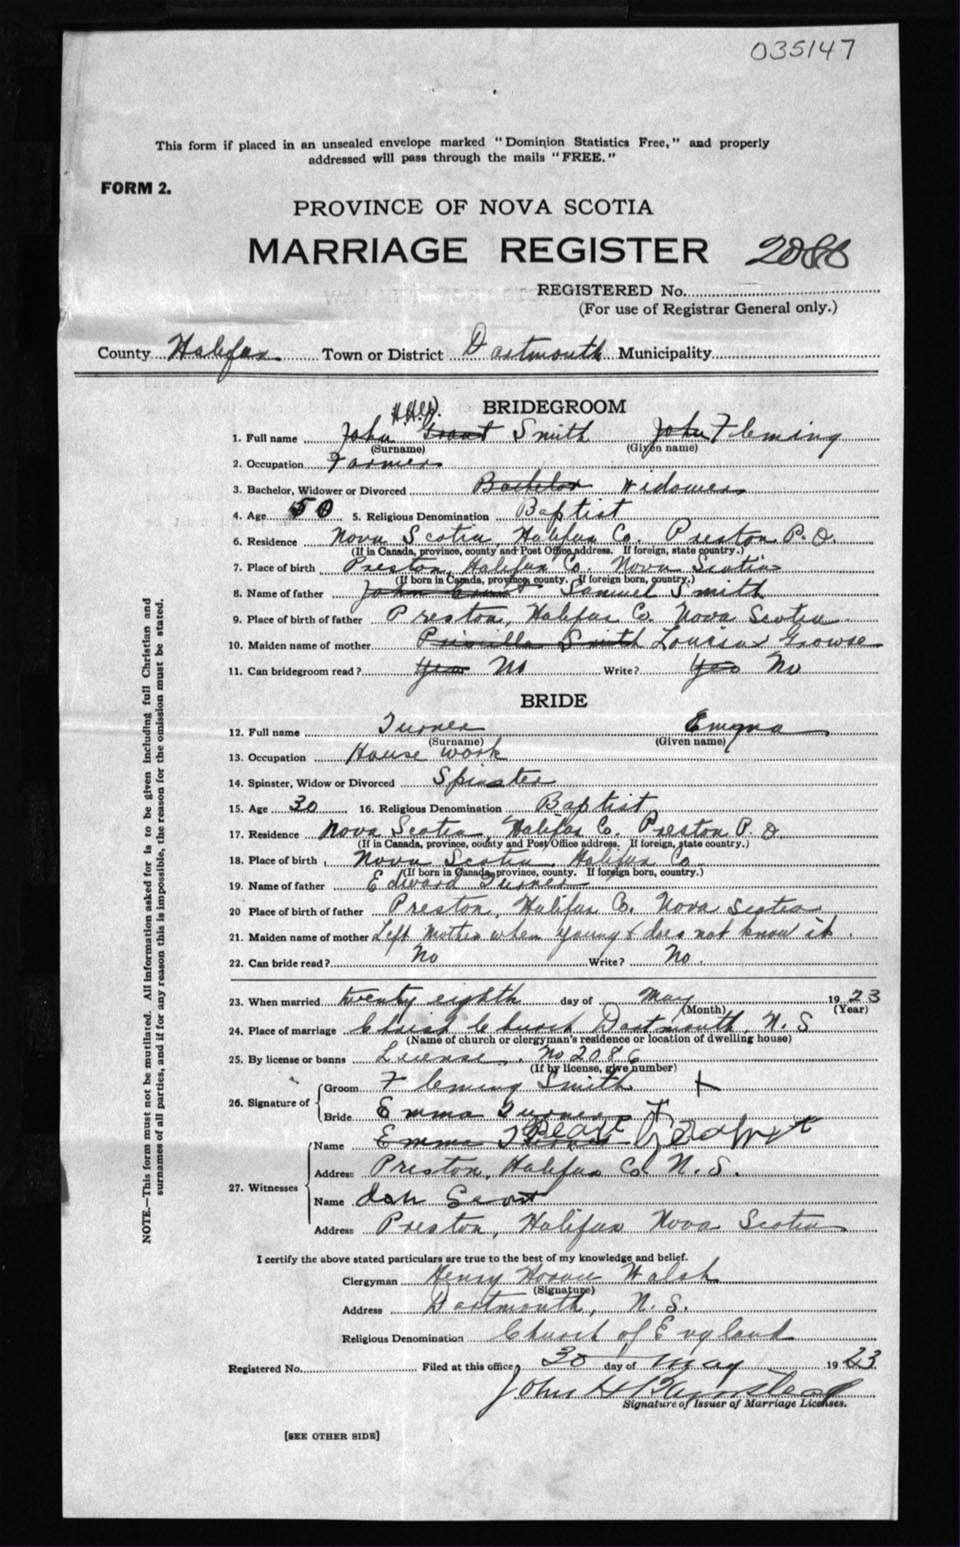 035147
This form if placed in an unsealed envelope marked "Dominion Statistics Free," and properly
addressed will pass through the mails "FREE."
FORM 2.
PROVINCE OF NOVA SCOTIA
MARRIAGE REGISTER 2086
REGISTERED No.
(For use of Registrar General only.)
County Halifax Town or District Dartmouth Municipality
BRIDEGROOM
H.H.W.
1. Full name John Grant Smith John Fleming
(Surname) (Given name)
2. Occupation Farmer
3. Bachelor, Widower or Divorced Bachelor Widower
4. Age 50 5. Religious Denomination Baptist
6. Residence Nova Scotia, Halifax Co. Preston P.O.
(If in Canada, province, county and Post Office address. If foreign, state country.)
7. Place of birth Preston, Halifax Co. Nova Scotia
(If born in Canada, province, county. If foreign born, country.)
8. Name of father John Grant Samuel Smith
9. Place of birth of father Preston, Halifax Co. Nova Scotia
10. Maiden name of mother Priscilla Smith Louisa Growse
11. Can bridegroom read? Yes No Write? Yes No
BRIDE
12. Full name Turner Emma
(Surname) (Given name)
13. Occupation House work
14. Spinster, Widow or Divorced Spinster
15. Age 30 16. Religious Denomination Baptist
17. Residence Nova Scotia, Halifax Co. Preston P.O.
(If in Canada, province, county and Post Office address. If foreign, state country.)
18. Place of birth Nova Scotia Halifax Co.
(If born in Canada, province, county. If foreign born, country.)
19. Name of father Edward Turner
20 Place of birth of father Preston, Halifax Co. Nova Scotia
21. Maiden name of mother Left Mother when young & does not know it.
22. Can bride read? No Write? No.
23. When married twenty eighth day of May 1923
(Month) (Year)
24. Place of marriage Christ Church Dartmouth, N.S
(Name of church or clergyman's residence or location of dwelling house)
25. By license or banns License. No 2086
(If by license, give number)
26. Signature of Groom Fleming Smith X
Bride Emma Turner X
27. Witnesses Name Emma
Address Preston, Halifax Co. N.S.
Name
Address Preston, Halifax Nova Scotia
I certify the above stated particulars are true to the best of my knowledge and belief.
Clergyman Henry Walsh
(Signature)
Address Dartmouth, N.S.
Religious Denomination Church of England
Registered No. Filed at this office, 30 day of May 1923
John H
Signature of Issuer of Marriage Licenses.
[SEE OTHER SIDE]
NOTE.—This form must not be mutilated. All information asked for is to be given including full Christian and
surnames of all parties, and if for any reason this is impossible, the reason for the omission must be stated.